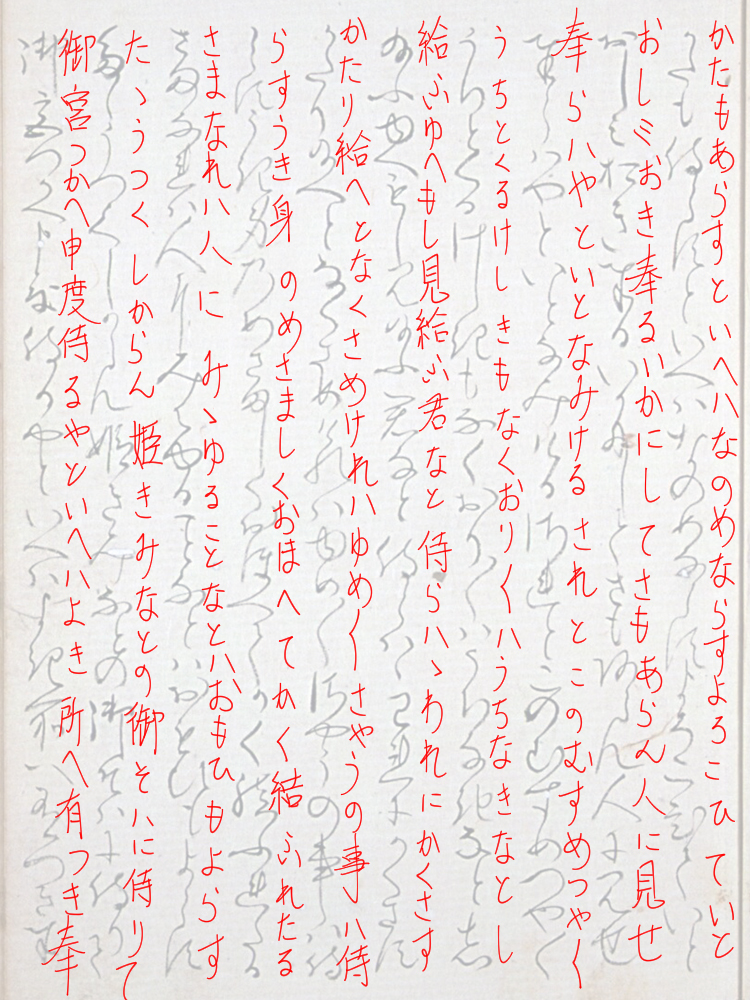 かたもあらすといへハなのめならすよろこひていと
おしミおき奉るいかにしてさもあらん人に見せ
奉らハやといとなみけるされとこのむすめつやく
うちとくるけしきもなくおり〱ハうちなきなとし
給ふゆへもし見給ふ君なと侍らハゝわれにかくさす
かたり給へとなくさめけれハゆめ〱さやうの事ハ侍
らすうき身のめさましくおほへてかく結ふれたる
さまなれハ人にみゝゆることなとハおもひもよらす
たゝうつくしからん姫きみなとの御そハに侍りて
御宮つかへ申度侍るやといへハよき所へ有つき奉